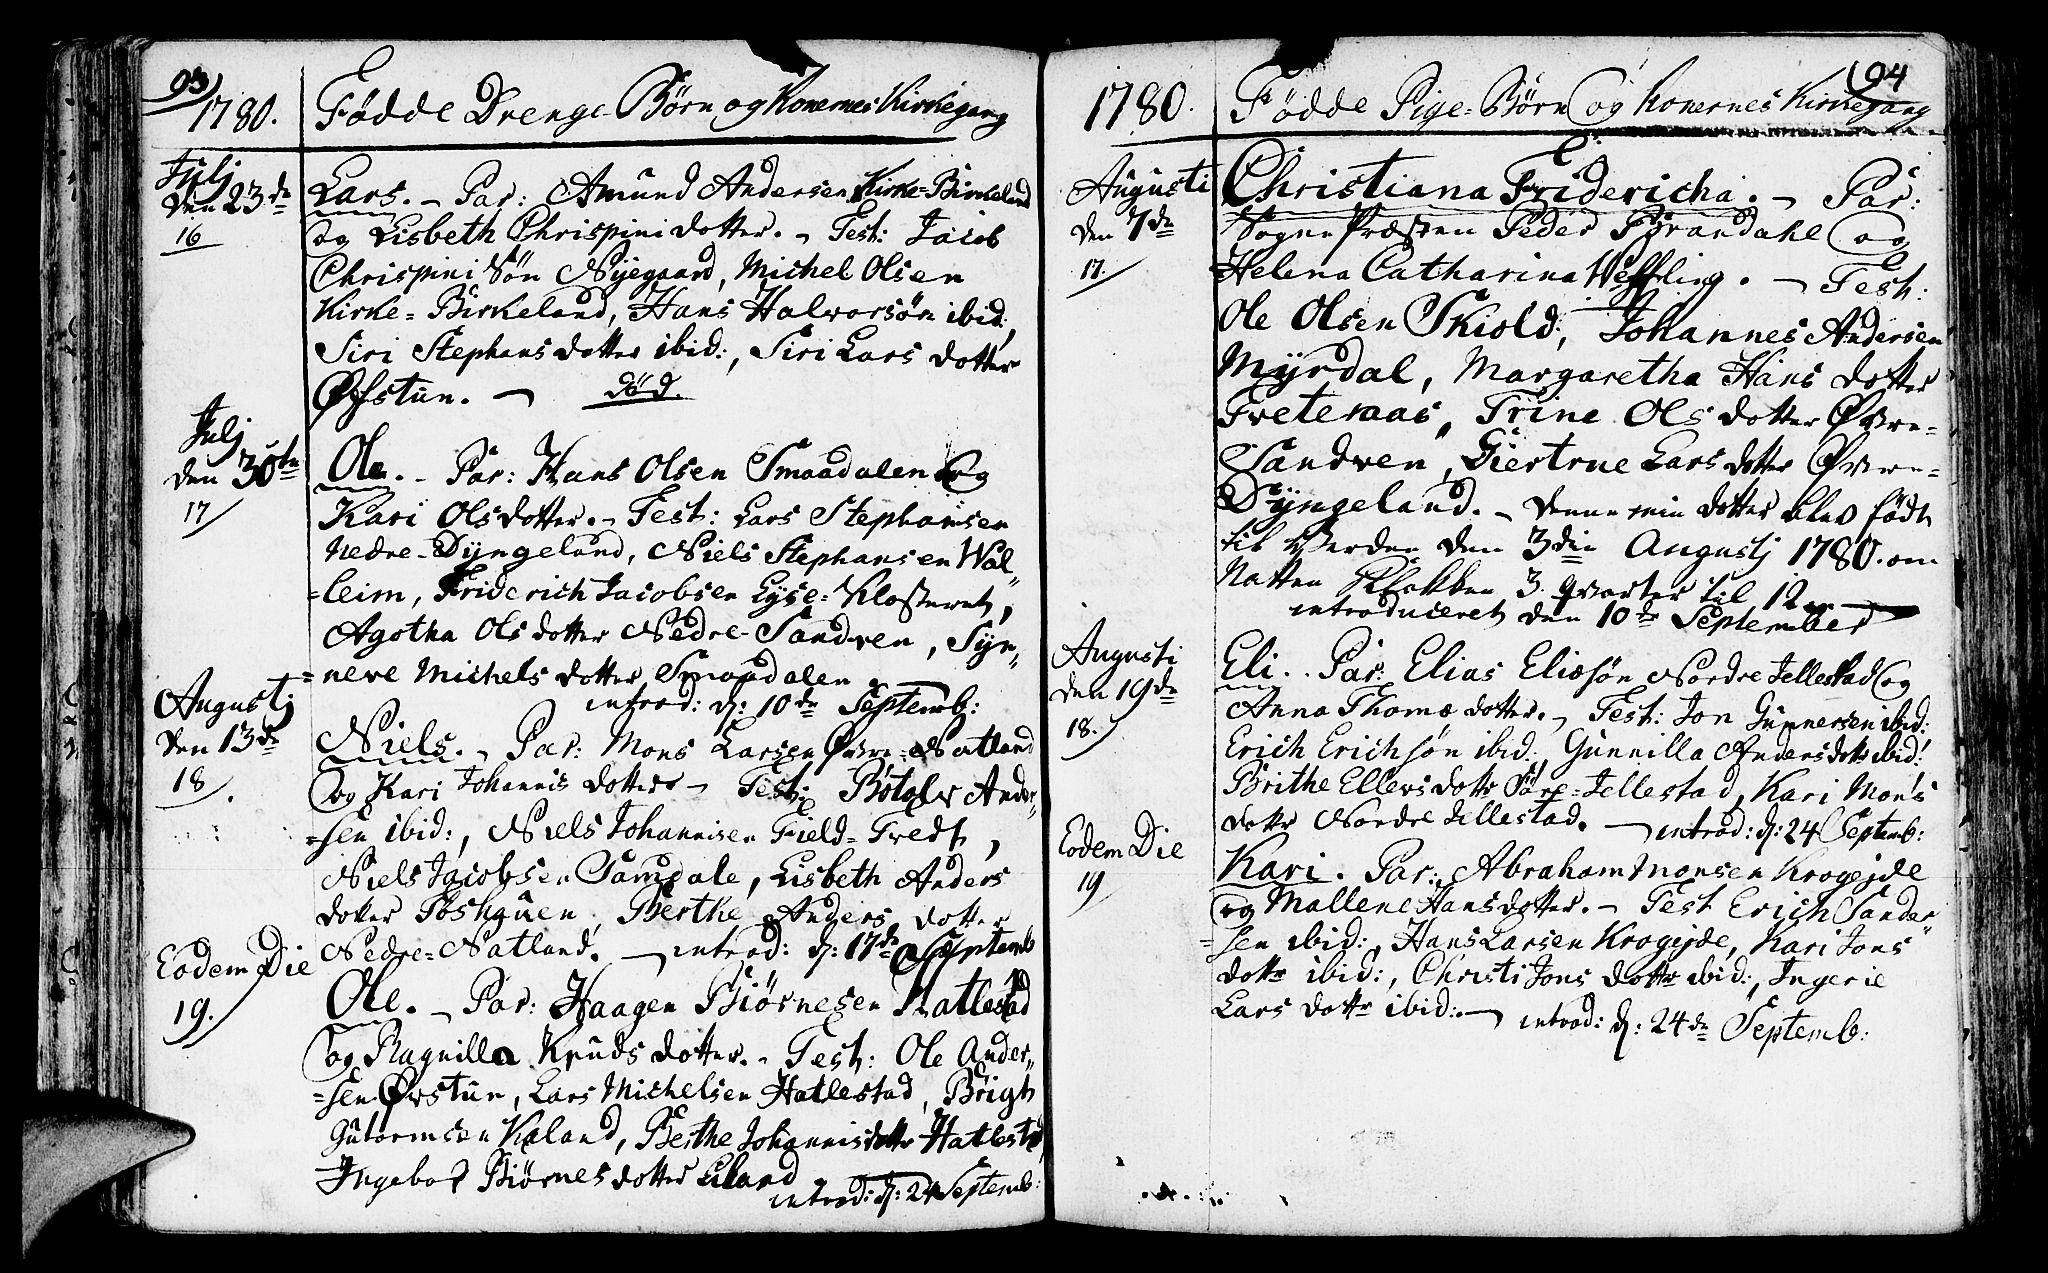 93)
1780. Fødde Drenge-Børn og Konernes Kirkegang
Julj
den 23de
16
Lars. - Par: Amund Andersen Kirke-Birkeland
og Lisbeth Chrispini dotter. - Test: Jacob
Chrispini Søn Nÿegaard, Michel Olsen
Kirke-Birkeland, Hans Halvorsøn ibid:,
Siri Stephans dotter ibid:, Siri Lars dotter
Øfstun. - død.
Julj
den 30te
17
Ole. - Par: Hans Olsen Smaadalen og
Kari Olsdotter. - Test: Lars Stephansen
Nedre-Dÿngeland, Niels Stephansen Wal-
=leim, Friderich Jacobsen Lyse-Klosteret,
Agotha Olsdotter Nedre-Sandven, Sÿn-
=neve Michels dotter Smaadalen
introd: d: 10de Septemb:
Augustj
den 13de
18
Niels. - Par: Mons Larsen Øvre-Natland
og Kari Johannis dotter - Test: Botolv Ander-
=sen ibid:, Niels Johannisen Field-Tvedt,
Niels Jacobsen Samdale, Lisbeth Anders
dotter Foshguen, Berthe Anders dotter
Nedre-Natland. - introd: d: 17de Septemb
Eodem Die
19.
Ole. - Par: Haagen Biørnesen Hatlestad
og Ragnilla Knuds dotter. - Test: Ole Ander-
=sen Øvstun, Lars Michelsen Hatlestad, Brigt
Gutormsen Kaland, Berthe Johannisdotter Hatlestad,
Ingebor Biørnes dotter Liland
introd: d: 24 Septemb:
(94
1780. Fødde Pige-Børn og Konernes Kirkegang
Augusti
den 7de
17
Christiana Fridericha. - Par:
Sogne Præsten Peder Brandahl og
Helena Catharina Weffling. - Test:
Ole Olsen Skiold, Johannes Andersen
Mÿrdal, Margaretha Hans dotter
Tveteraas, Trine Ols dotter Øvre-
Sandven, Giertrue Lars dotter Øvre-
Dÿngeland. - Denne min dotter blev født
til Verden den 3die Augustj 1780. om
Natten Klokken 3. qvarter til 12
introduceret den 10de September
Augusti
den 19de
18.
Eli. - Par: Elias Eliæsøn Nordre Jellestad og
Anna Thomæ dotter. - Test: Jon Gunnersen ibid:
Erich Erichsøn ibid: Gunnilla Andersdottr ibid:
Brithe Ellevsdottr Søre-Jellestad, Kari Mons
dottr Nordre Jellestad. - introd: d: 24 Septemb:
Eodem Die
19
Kari. Par: Abraham Monsen Krogejde
og Mallene Hansdotter. - Test Erich Sander
=sen ibid:, Hans Larsen Krogejde, Kari Jons
dottr ibid:, Christi Jons dottr ibid:, Ingerie
Lars dottr ibid:. - introd: d: 24de Septemb: